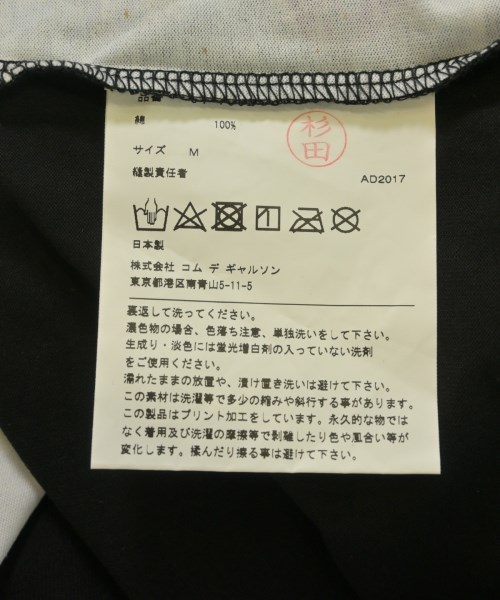 綿 100%
杉田
サイズ M
縫製責任者
AD2017
日本製
株式会社 コム デ ギャルソン
東京都港区南青山5-11-5
裏返して洗ってください。
濃色物の場合、色落ち注意、単独洗いをして下さい。
生成り・淡色には蛍光増白剤の入っていない洗剤
をご使用ください。
濡れたままの放置や、漬け置き洗いは避けて下さい。
この素材は洗濯等で多少の縮みや斜行する事があります。
この製品はプリント加工をしています。永久的な物では
なく着用及び洗濯の摩擦等で剥離したり色や風合い等が
変化します。揉んだり擦る事は避けて下さい。